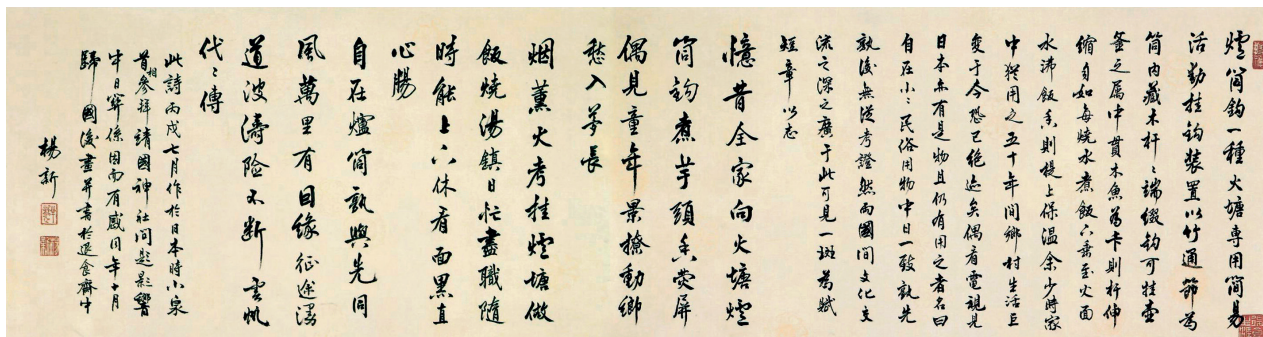 爐筒鈎一種火塘專用簡易
活動挂鈎裝置以竹通節為
筒内藏木杆〻端綴鈎可挂壺
釜之屬中貫木魚為卡則杆伸
縮自如每燒水煮飯下垂至火面
水沸飯香則提上保温余少時家
中猶用之五十年間鄉村生活巨
變于今恐已絶迹矣偶看電視見
日本亦有是物且仍有用之者名曰
自在小〻民俗用物中日一致孰先
孰後無從考證然兩國間文化交
流之深之廣于此可見一斑為賦
短章以志
憶昔全家向火塘爐
筒鈎煮芋頭香熒屏
偶見童年景撩動鄉
愁入夢長
烟薰火考挂爐塘做
飯燒湯鎮日忙盡職隨
時能上下休看面黑直
心腸
自在爐筒孰與先同
風萬里有因緣征途漫
道波濤險不斷雲帆
代〻傳
此詩丙戌七月作於日本時小泉
首相參拜靖國神社問題影響
中日關係因而有感同年十月
歸國後畫并書於退食齋中
楊新